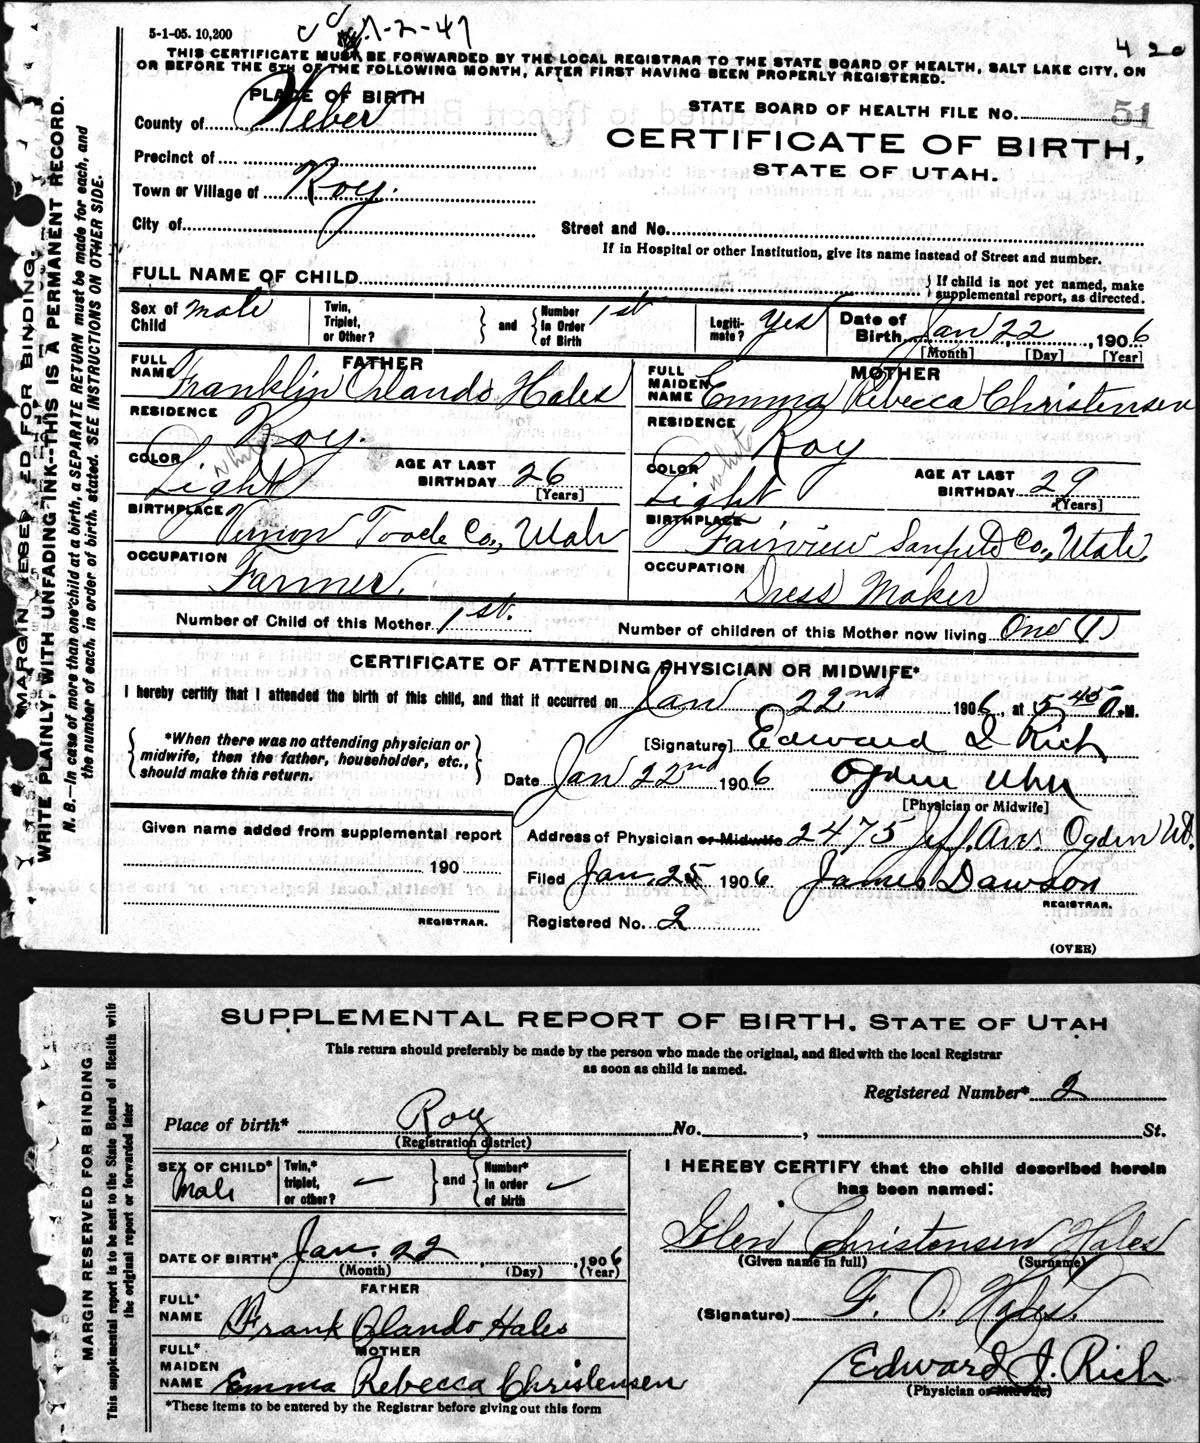 5-1-05. 10,200
7-2-47
4 20
THIS CERTIFICATE MUST BE FORWARDED BY THE LOCAL REGISTRAR TO THE STATE BOARD OF HEALTH, SALT LAKE CITY, ON
OR BEFORE THE 5TH OF THE FOLLOWING MONTH, AFTER FIRST HAVING BEEN PROPERLY REGISTERED.
PLACE OF BIRTH
STATE BOARD OF HEALTH FILE No. 51
County of Weber
CERTIFICATE OF BIRTH,
Precinct of
STATE OF UTAH.
Town or Village of Roy.
City of
Street and No.
If in Hospital or other Institution, give its name instead of Street and number.
FULL NAME OF CHILD
{ If child is not yet named, make
supplemental report, as directed.
Sex of Child male
Twin, Triplet, or Other? } and { Number In Order of Birth 1st
Legiti-mate? Yes
Date of Birth Jan 22, 1906
[Month] [Day] [Year]
FATHER
FULL NAME Franklin Orlando Hales
RESIDENCE Roy.
COLOR Light white
AGE AT LAST BIRTHDAY 26
[Years]
BIRTHPLACE Vernon Tooele Co., Utah
OCCUPATION Farmer.
MOTHER
FULL MAIDEN NAME Emma Rebecca Christensen
RESIDENCE Roy
COLOR Light white
AGE AT LAST BIRTHDAY 29
[Years]
BIRTHPLACE Fairview Sanpete Co., Utah,
OCCUPATION Dress Maker
Number of Child of this Mother 1st.
Number of children of this Mother now living One (1)
CERTIFICATE OF ATTENDING PHYSICIAN OR MIDWIFE*
I hereby certify that I attended the birth of this child, and that it occurred on Jan 22nd 1906, at 5 45 A.M.
{ *When there was no attending physician or
midwife, then the father, householder, etc.,
should make this return. }
[Signature] Edward I Rich
Date Jan 22nd 1906 Ogden Utah
[Physician or Midwife]
Given name added from supplemental report
190
REGISTRAR.
Address of Physician or Midwife 2475 Jeff. Ave. Ogden Ut.
Filed Jan. 25 1906 James Dawson
REGISTRAR.
Registered No. 2
(OVER)
MARGIN RESERVED FOR BINDING.
WRITE PLAINLY, WITH UNFADING INK--THIS IS A PERMANENT RECORD.
N. B.--In case of more than one child at a birth, a SEPARATE RETURN must be made for each, and
the number of each, in order of birth, stated. SEE INSTRUCTIONS ON OTHER SIDE.
SUPPLEMENTAL REPORT OF BIRTH. STATE OF UTAH
This return should preferably be made by the person who made the original, and filed with the local Registrar
as soon as child is named.
Registered Number* 2
Place of birth* Roy No. , St.
(Registration district)
SEX OF CHILD* Male
Twin,* triplet, or other? — } and { Number* in order of birth —
DATE OF BIRTH* Jan. 22, 1906
(Month) (Day) (Year)
FATHER
FULL* NAME Frank Olando Hales
MOTHER
FULL* MAIDEN NAME Emma Rebecca Christensen
*These items to be entered by the Registrar before giving out this form
I HEREBY CERTIFY that the child described herein
has been named:
Glen Christensen Hales
(Given name in full) (Surname)
(Signature) F. O. Hales.
Edward I. Rich
(Physician or Midwife)
MARGIN RESERVED FOR BINDING
This supplemental report is to be sent to the State Board of Health with
the original report or forwarded later